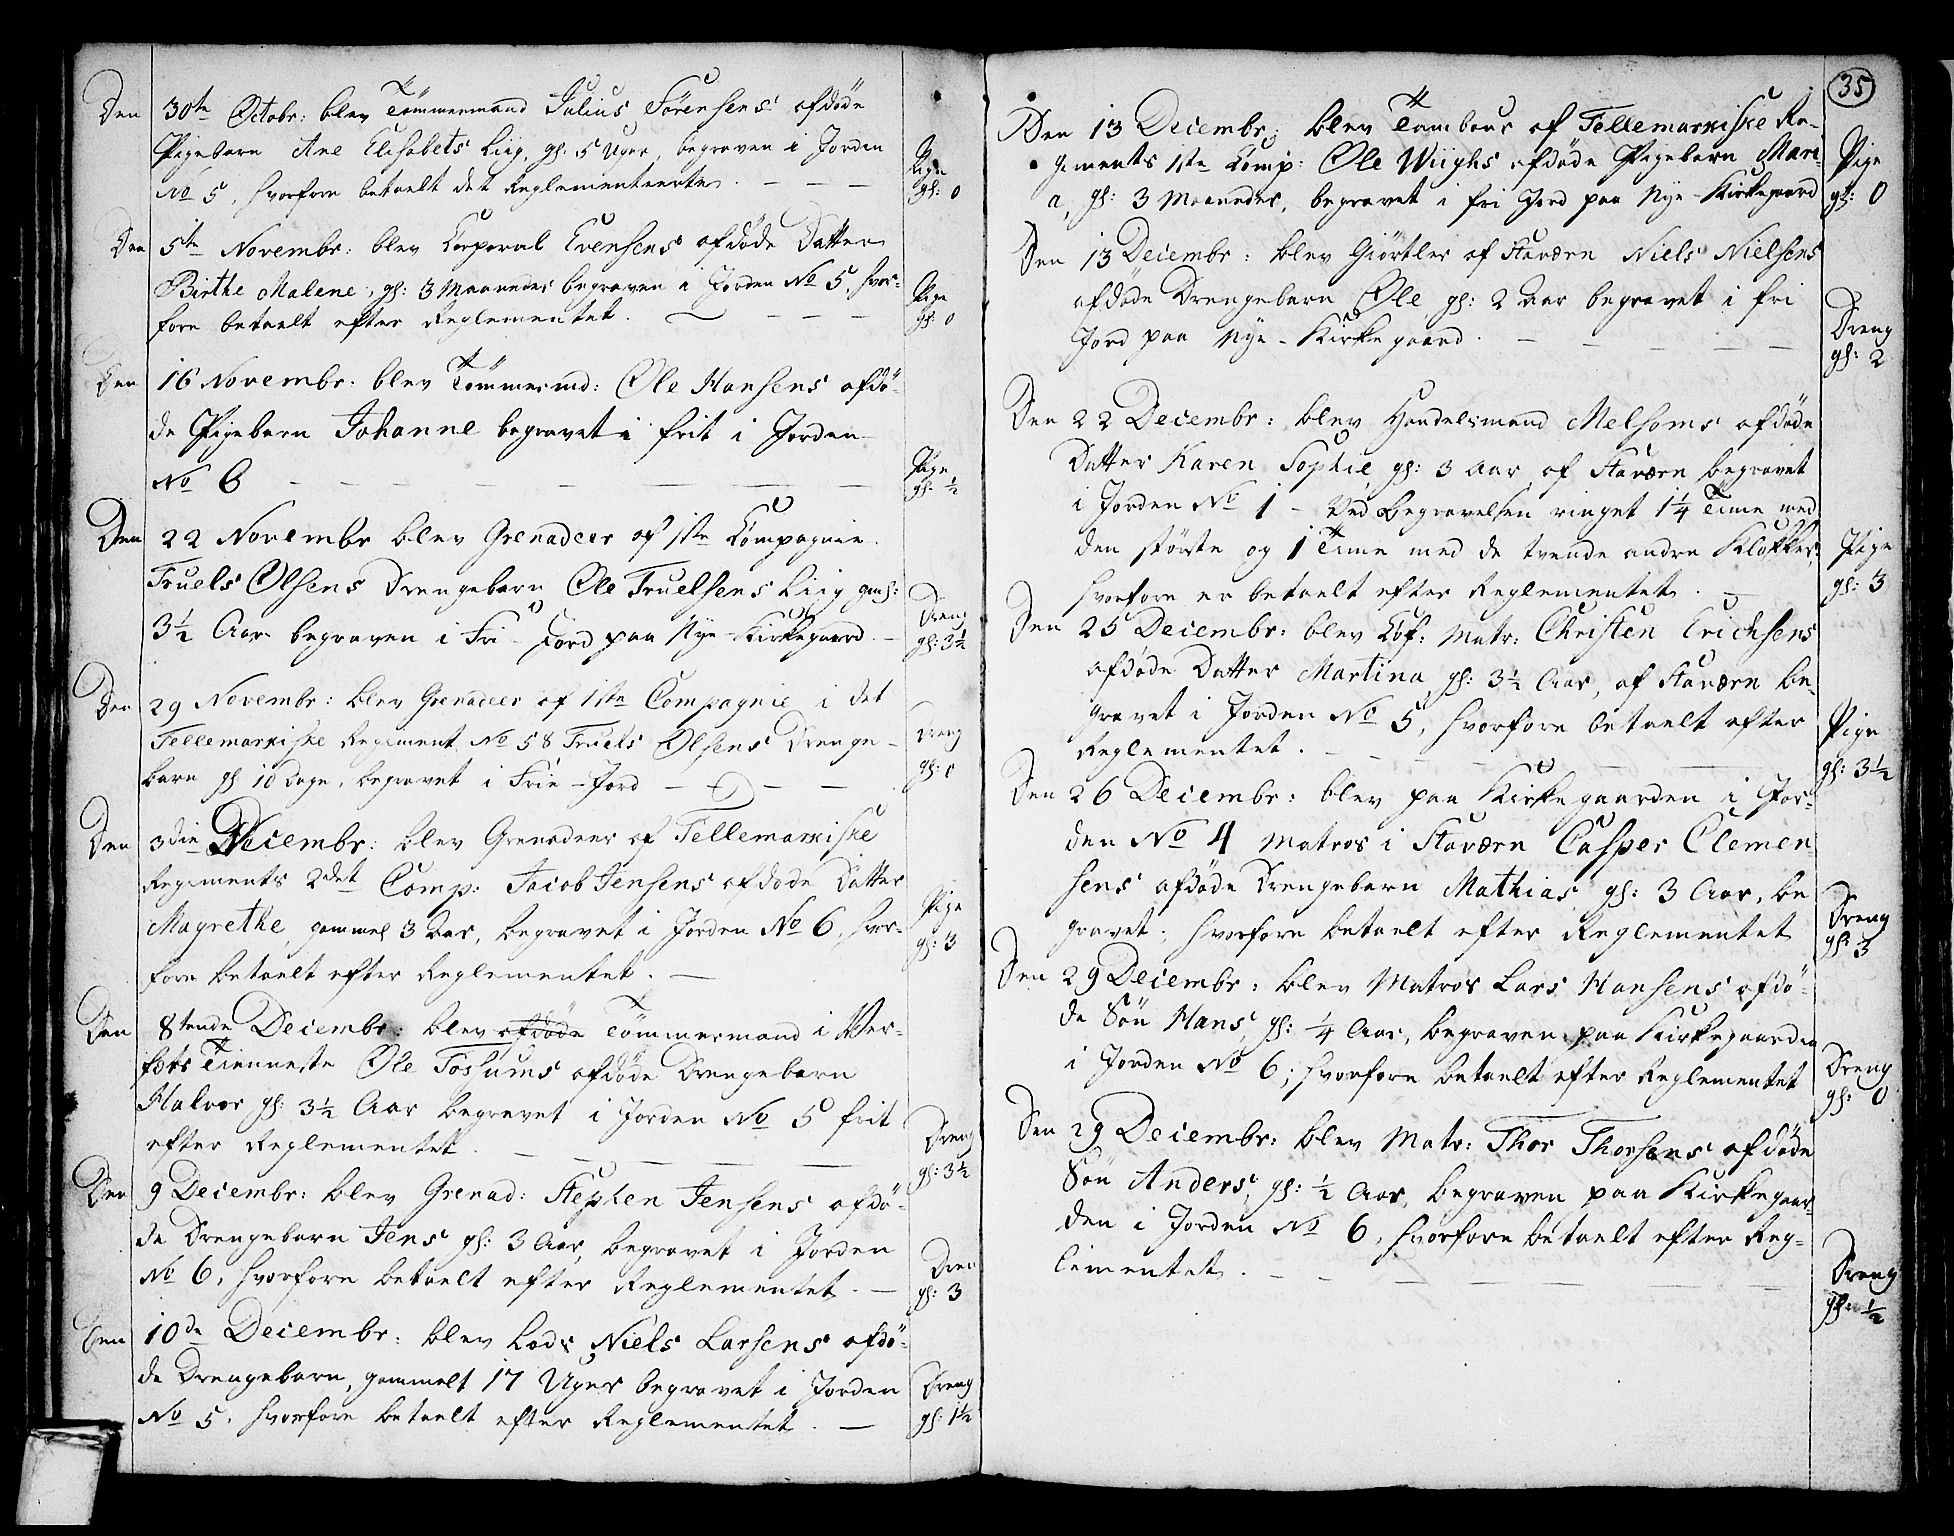 Den 30te Octobr: blev Tömmermand Julius Sörensens afdöde
Pigebarn Ane Elisabets Liig, gl: 5 Uger, begraven i Jorden
No 5, hvorfore betaelt det Reglementeerte. — — —
Pige
gl: 0
Den 5te Novembr: blev Corporal Evensens afdöde Datter
Birthe Malene, gl: 3 Maaneder begraven i Jorden No 5, hvor-
fore betaelt efter Reglementet. — — — —
Pige
gl: 0
Den 16 Novembr: blev Tömmermd: Ole Hansens afdö-
de Pigebarn Johanne begravet i frit i Jorden
No 6 — — — — — —
Pige
gl: ½
Den 22 Novembr blev Grenadeer af 1ste Compagnie.
Truels Olsens Drengebarn Ole Truelsens Liig gml:
3½ Aar begraven i Fri-Jord paa Nye Kirkegaard. —
Dreng
gl: 3½
Den 29 Novembr: blev Grenadeer af 1ste Compagnie i det
Tellemarkiske Regiment No 58 Truels Olsens Drenge-
barn gl 10 Dage, begravet i Frie-Jord — — —
Dreng
gl: 0
Den 3die Decembr: blev Grenadeer af Tellemarkiske
Regiments 2det Comp: Jacob Jensens afdöde Datter
Magrethe, gammel 3 Aar, begravet i Jorden No 6, hvor-
fore betaelt efter Reglementet. —
Pige
gl: 3
Den 8tende Decembr: blev afdöde Tömmermand i Ver-
fets Tienneste Ole Fossums afdöde Drengebarn
Halvor gl: 3½ Aar begravet i Jorden No 5 frit
efter Reglementet. — — — — —
Dreng
gl: 3½
Den 9 Decembr: blev Grenad: Stephen Jensens afdö-
de Drengebarn Jens gl: 3 Aar, begravet i Jorden
No 6, hvorfore betaelt efter Reglementet. —
Dren
gl: 3
Den 10de Decembr: blev Lods Niels Larsens afdö-
de Drengebarn, gammelt 17 Uger begravet i Jorden
No 5, hvorfore betaelt efter Reglementet. —
Dreng
gl: 1½
35
Den 13 Decembr: blev Tambour af Tellemarkiske Re-
giments 1ste Comp: Ole Wiighs afdöde Pigebarn Mari-
a, gl: 3 Maaneder, begravet i fri Jord paa Nye-Kirkegaard
Pige
gl: 0
Den 13 Decembr: blev Giörtler af Staværn Niels Nielsens
afdöde Drengebarn Ole, gl: 2 Aar begravet i fri
Jord paa Nye-Kirkegaard. — — — — —
Dreng
gl: 2
Den 22 Decembr: blev Handelsmand Melsoms afdöde
Datter Karen Sophie, gl: 3 Aar, af Staværn begravet
i Jorden No 1 - Ved Begravelsen ringet 1¼ Time med
den störste og 1 Time med de tvende andre Klokker,
hvorfore er betaelt efter Reglementet. —
Pige
gl: 3
Den 25 Decembr: blev Cof: Matr: Christen Erichsens
afdöde Datter Martina, gl: 3½ Aar, af Staværn be-
gravet i Jorden No 5, hvorfore betaelt efter
Reglementet. — — — — —
Pige
gl: 3½
Den 26 Decembr: blev paa Kirkegaarden i Jor-
den No 4 Matros i Staværn Casper Clemen-
sens afdöde Drengebarn Mathias, gl: 3 Aar, be
gravet; hvorfore betaelt efter Reglementet
Dreng
gl: 3
Den 29 Decembr: blev Matros Lars Hansens afdö-
de Sön Hans, gl: ¼ Aar, begraven paa Kirkegaarden
i Jorden No 6; hvorfore betaelt efter Reglementet
Dreng
gl: 0
Den 29 Decembr: blev Matr: Thor Thorsens afdöde
Sön Anders, gl: ½ Aar, begraven paa Kirkegaar-
den i Jorden No 6, hvorfore betaelt efter Reg-
lementet. — — — — — —
Dreng
gl: ½